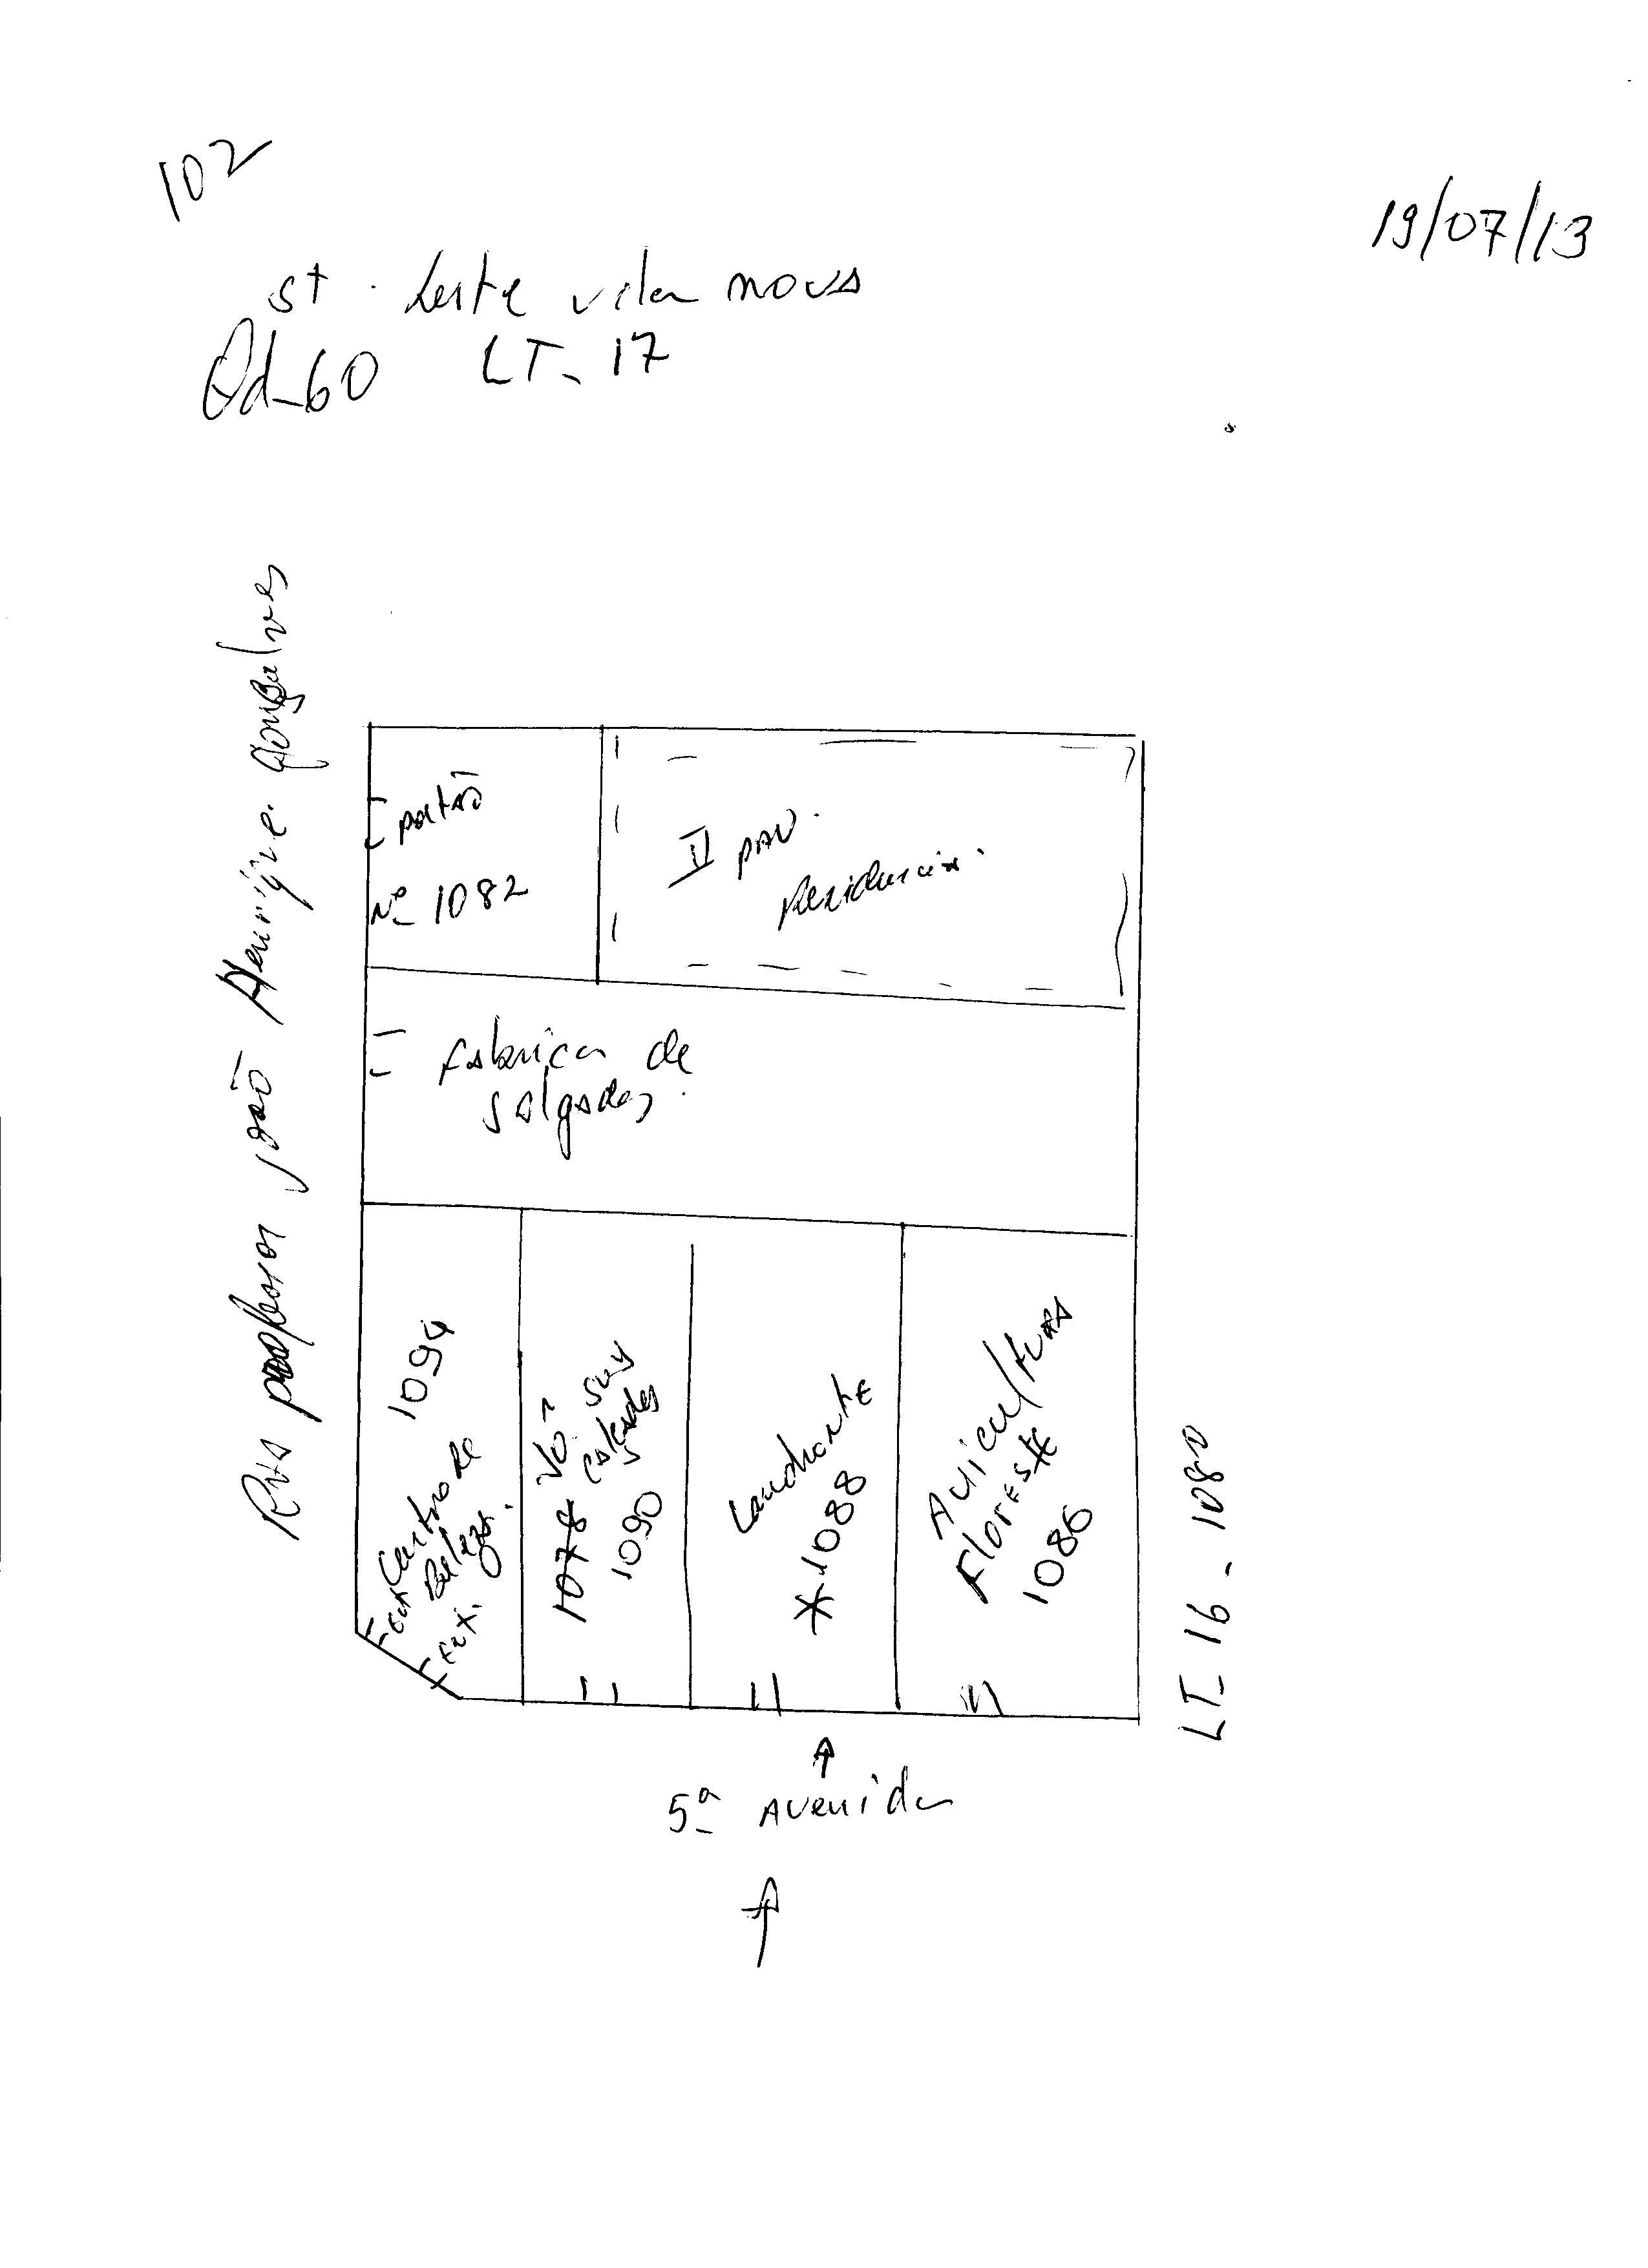 102
19/07/13
St. Leste vila nova
Qd-60 LT- 17
Rua professor joão Henrique gonçalves
portão
Nº 1082
II pav.
Residencia.
Fabrica de
salgados.
1094
Centro de
Beleza.
1078
calçados
1090
Lanchonte
*1088
Avicultura
FlorestE
1086
LT- 16 - 1080
5ª Avenida